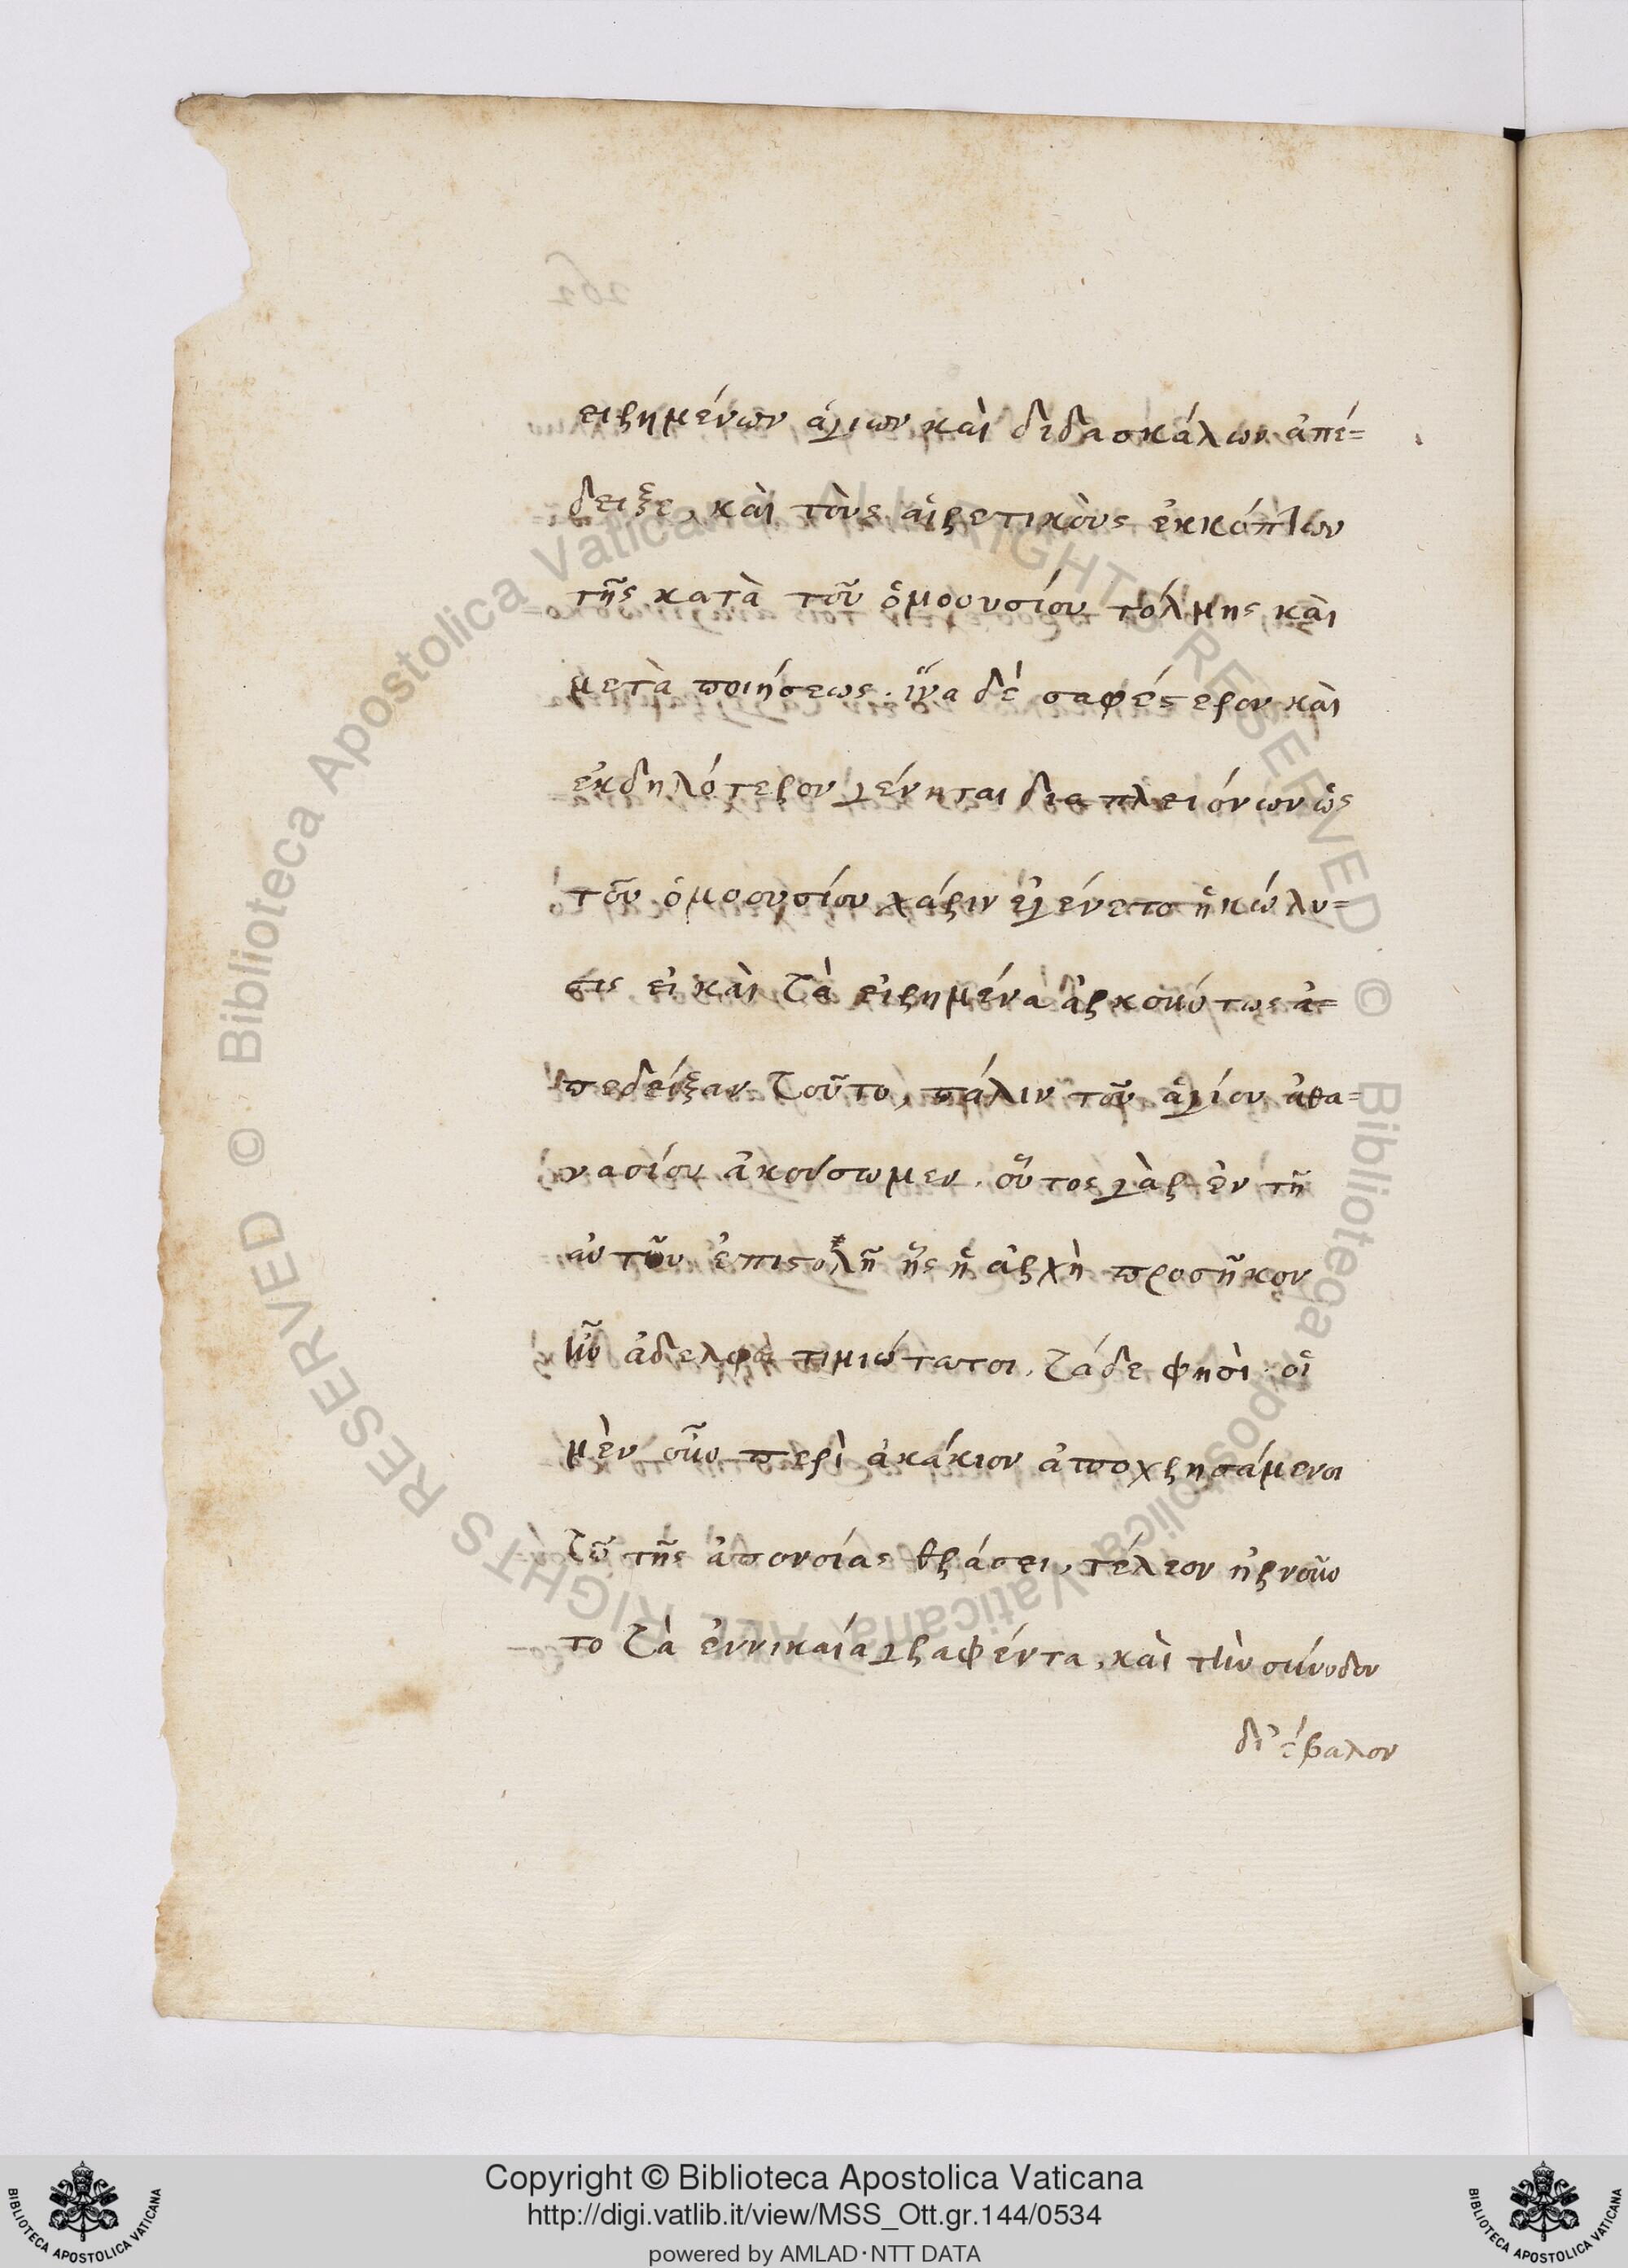 ειρημένων ἁγίων καὶ διδασκάλων ἀπέ=
δειξε, καὶ τοὺς αἱρετικοὺς ἐκκόπτων
τῆς κατὰ τοῦ ὁμοουσίου τόλμης καὶ
μετὰ ποιήσεως. ἵνα δέ σαφέστερον καὶ
ἐκδηλότερον γένηται δια πλειόνων ὡς
τοῦ ὁμοουσίου χάριν ἐγένετο ἡ κώλυ=
σις εἰ καὶ τὰ εἰρημένα ἀρκούντως ἀ=
πεδείξαν τοῦτο, πάλιν τοῦ ἁγίου ἀθα=
νασίου ἀκούσωμεν. οὗτος γὰρ ἐν τῇ
αὐτοῦ ἐπιστολῇ ἧς ἡ ἀρχὴ προσῆκον
ἦν ἀδελφοὶ τιμιώτατοι. τάδε φησὶ. οἱ
μὲν οὖν περὶ ἀκάκιον ἀποχρησάμενοι
τῷ τῆς ἀπονοίας θράσει, τέλεον ἠρνοῦν
το τὰ ἐν νικαία γραφέντα, καὶ τὴν σύνοδον
διέβαλον
262
© Biblioteca Apostolica Vaticana ALL RIGHTS RESERVED © Biblioteca Apostolica Vaticana ALL RIGHTS RESERVED
Copyright © Biblioteca Apostolica Vaticana
http://digi.vatlib.it/view/MSS_Ott.gr.144/0534
powered by AMLAD·NTT DATA
BIBLIOTECA APOSTOLICA VATICANA
BIBLIOTECA APOSTOLICA VATICANA